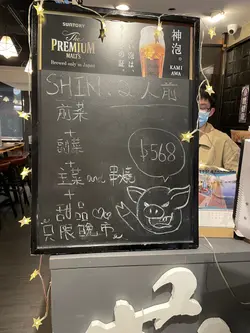 SUNTORY
The
PREMIUM
MALT'S
Brewed only in Japan
神泡。
KAMI
AWA
SHIN 2人前
前菜
+
副菜
+
主菜 and 串燒
+
甜品
只限晚市~
$568